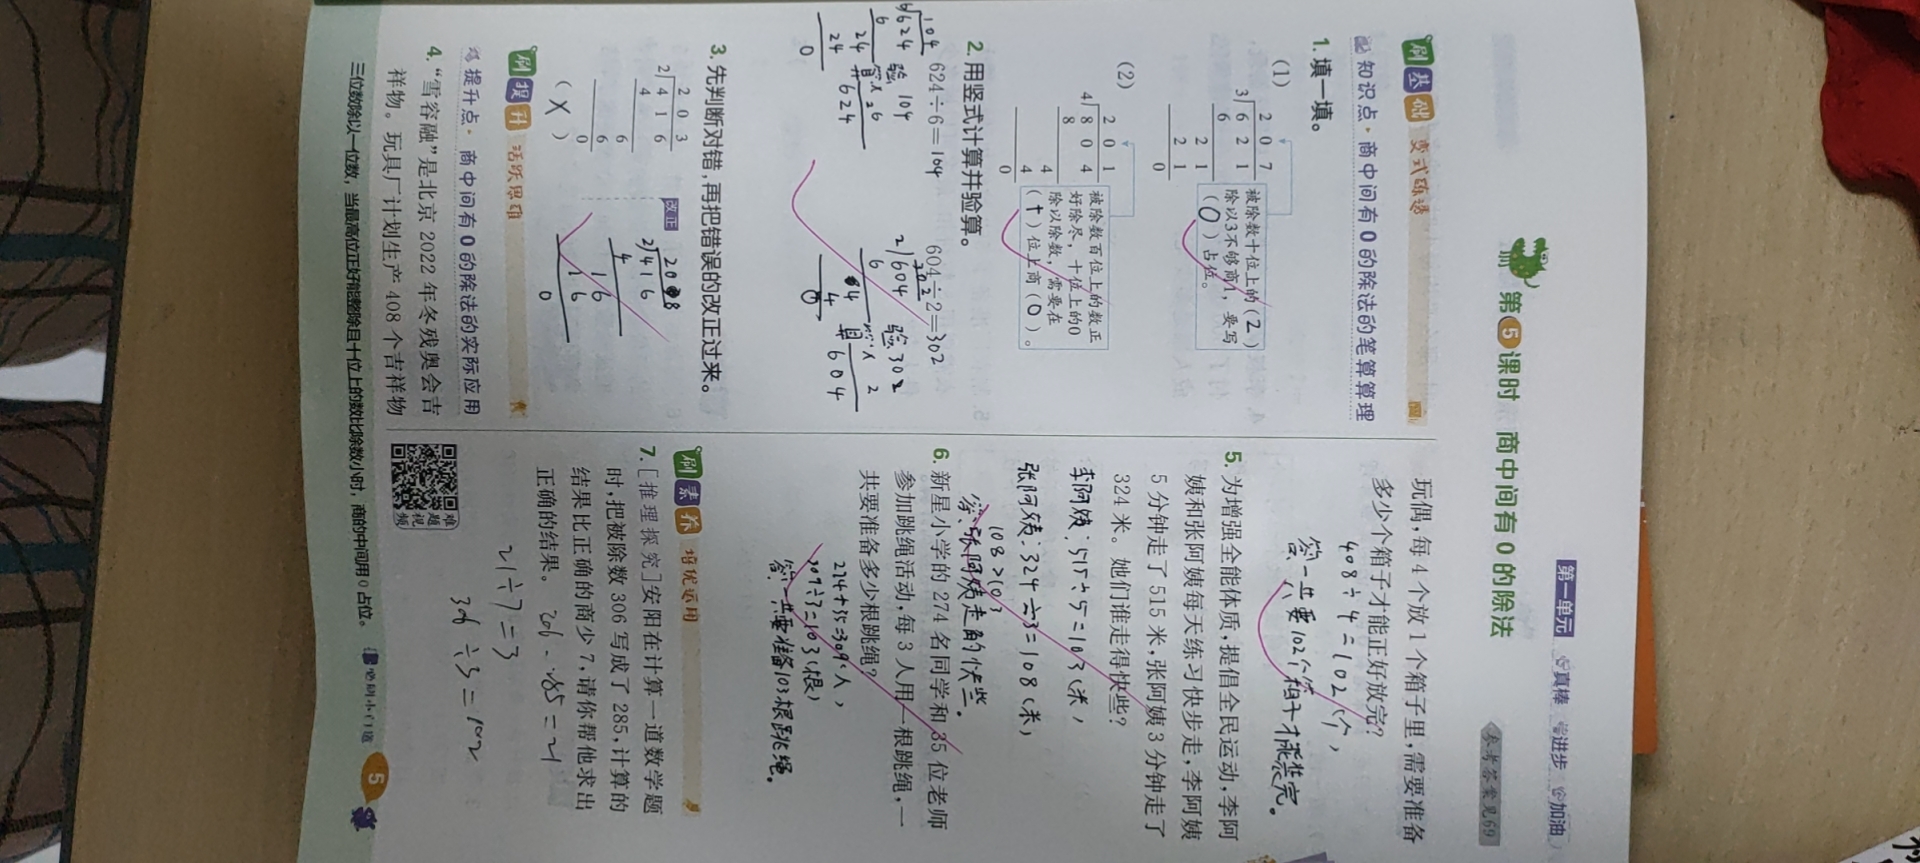 第一单元 真棒 进步 加油
第5课时 商中间有0的除法
参考答案见69
刷基础 变式练透
知识点·商中间有0的除法的笔算算理
1.填一填。
(1)
207
3)621
6
21
21
0
被除数十位上的(2)
除以3不够商1,要写
(0)占位。
(2)
201
4)804
8
4
4
0
被除数百位上的数正
好除尽,十位上的0
除以除数,需要在
(十)位上商(0)。
2.用竖式计算并验算。
624÷6=104
104
6)624
6
24
24
0
验算 104
×6
624
604÷2=302
302
2)604
6
4
4
0
验算 302
×2
604
3.先判断对错,再把错误的改正过来。
203
2)416
4
6
6
0
(X)
改正
208
2)416
4
16
16
0
刷提升 活跃思维
提升点·商中间有0的除法的实际应用
4.“雪容融”是北京2022年冬残奥会吉
祥物。玩具厂计划生产408个吉祥物
玩偶,每4个放1个箱子里,需要准备
多少个箱子才能正好放完?
408÷4=102(个)
答:一共要102个箱子才能装完。
5.为增强全能体质,提倡全民运动,李阿
姨和张阿姨每天练习快步走,李阿姨
5分钟走了515米,张阿姨3分钟走了
324米。她们谁走得快些?
李阿姨:515÷5=103(米)
张阿姨:324÷3=108(米)
108>103
答:张阿姨走的快些。
6.新星小学的274名同学和35位老师
参加跳绳活动,每3人用一根跳绳,一
共要准备多少根跳绳?
274+35=309(人)
309÷3=103(根)
答:一共要准备103根跳绳。
刷素养 培优运用
7.[推理探究]安阳在计算一道数学题
时,把被除数306写成了285,计算的
结果比正确的商少7,请你帮他求出
正确的结果。
306-285=21
21÷7=3
306÷3=102
难题视频
三位数除以一位数,当最高位正好能整除且十位上的数比除数小时,商的中间用0占位。
5